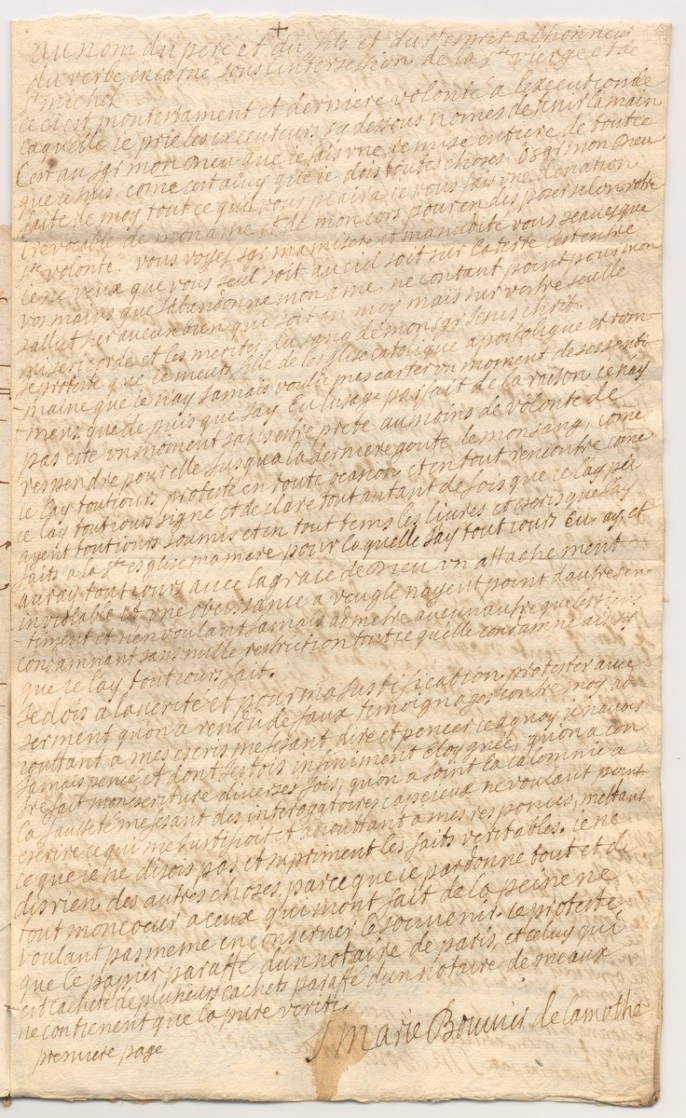 +
au nom du pere et du fils et du st esprit a lhonneur
du verbe incarné sous lintersession de la ste vierge et de
st michel
ce ci est mon testament et derniere volonté a lexecution de
laquelle ie prie les executeurs cy dessous només de tenir la main
Cest au sgr mon Dieu que ie fais vne remise entiere de tout ce
que ie suis, come cest a luy que ie dois toutes choses. o sgr mon Dieu
faite de moy tout ce quil vous plaira ie vous fais vne donation
irevocable de mon ame et de mon cors pour en disposer selon votre
ste volonté. vous voyes sgr ma misere et ma nudité vous scaues que
ie ne veux que vous seul soit au ciel soit sur la terre cest entre
vos mains que jabandonne mon ame, ne contant point pour mon
sallut sur aucun bien qui soit en moy mais sur vostre seulle
misericorde et les merites du sang de mon sgr Jesus christ.
Je proteste que ie meurs fille de leglise catolique apostolique et rom-
-maine que ie nay Jamais voulu mescarter vn moment de ses senti-
-mens. que de puis que Jay Eu lusage parfait de la raison ie nay
pas eté vn moment sans estre prete au moins de volonté de
respendre pour elle Jusqua la derniere goute de mon sang, come
ie lay toutjours protesté en toute ocasion, et en tout rencontre come
ie lay toutjours signé et declaré tout autant de fois que ie lay peu
ayent toutjours soumis et en tout tems les liures et escris que Jay
faits a la ste esglise ma mere pour laquelle Jay toutjours Eu, ay, et
auray toutjours auec la grace de Dieu vn attachement
inviolable et vne obeissance aveugle nayent point dautre sen-
-timent et nen voulant Jamais admetre aucun autre que les siens
condamnant sans nulle restriction tout ce quelle condamne ainsy
que ie lay toutjours fait.
Je dois a la verité et pour ma Justification protester auec
serment quon a rendu de faux temoignages contre moy ad-
jouttant a mes escris me fesant dire et pencer ce a quoy ie nauois
Jamais pencé, et dont Jestois infiniment eloygnée, quon a con
trefait mon escriture diverses fois, quon a Joint la calomnie a
la fausseté me fesant des interogatoires capcieux ne voulant point
escrire ce qui me Justifioit et adjouttant a mes responces, mettant
ce que ie ne disois pas et supriment les faits veritables. ie ne
dis rien des autres choses, parce que ie pardonne tout et de
tout mon coeur a ceux qui mont fait de la peine ne
voulant pas meme en conserver le souvenir. ie proteste
que le papier paraffé dun notaire de paris, et celuy qui
est cacheté de plusieurs cachets paraffé dun notaire de meaux
ne contienent que la pure verité.
J Marie Bouuier de lamothe
premiere page